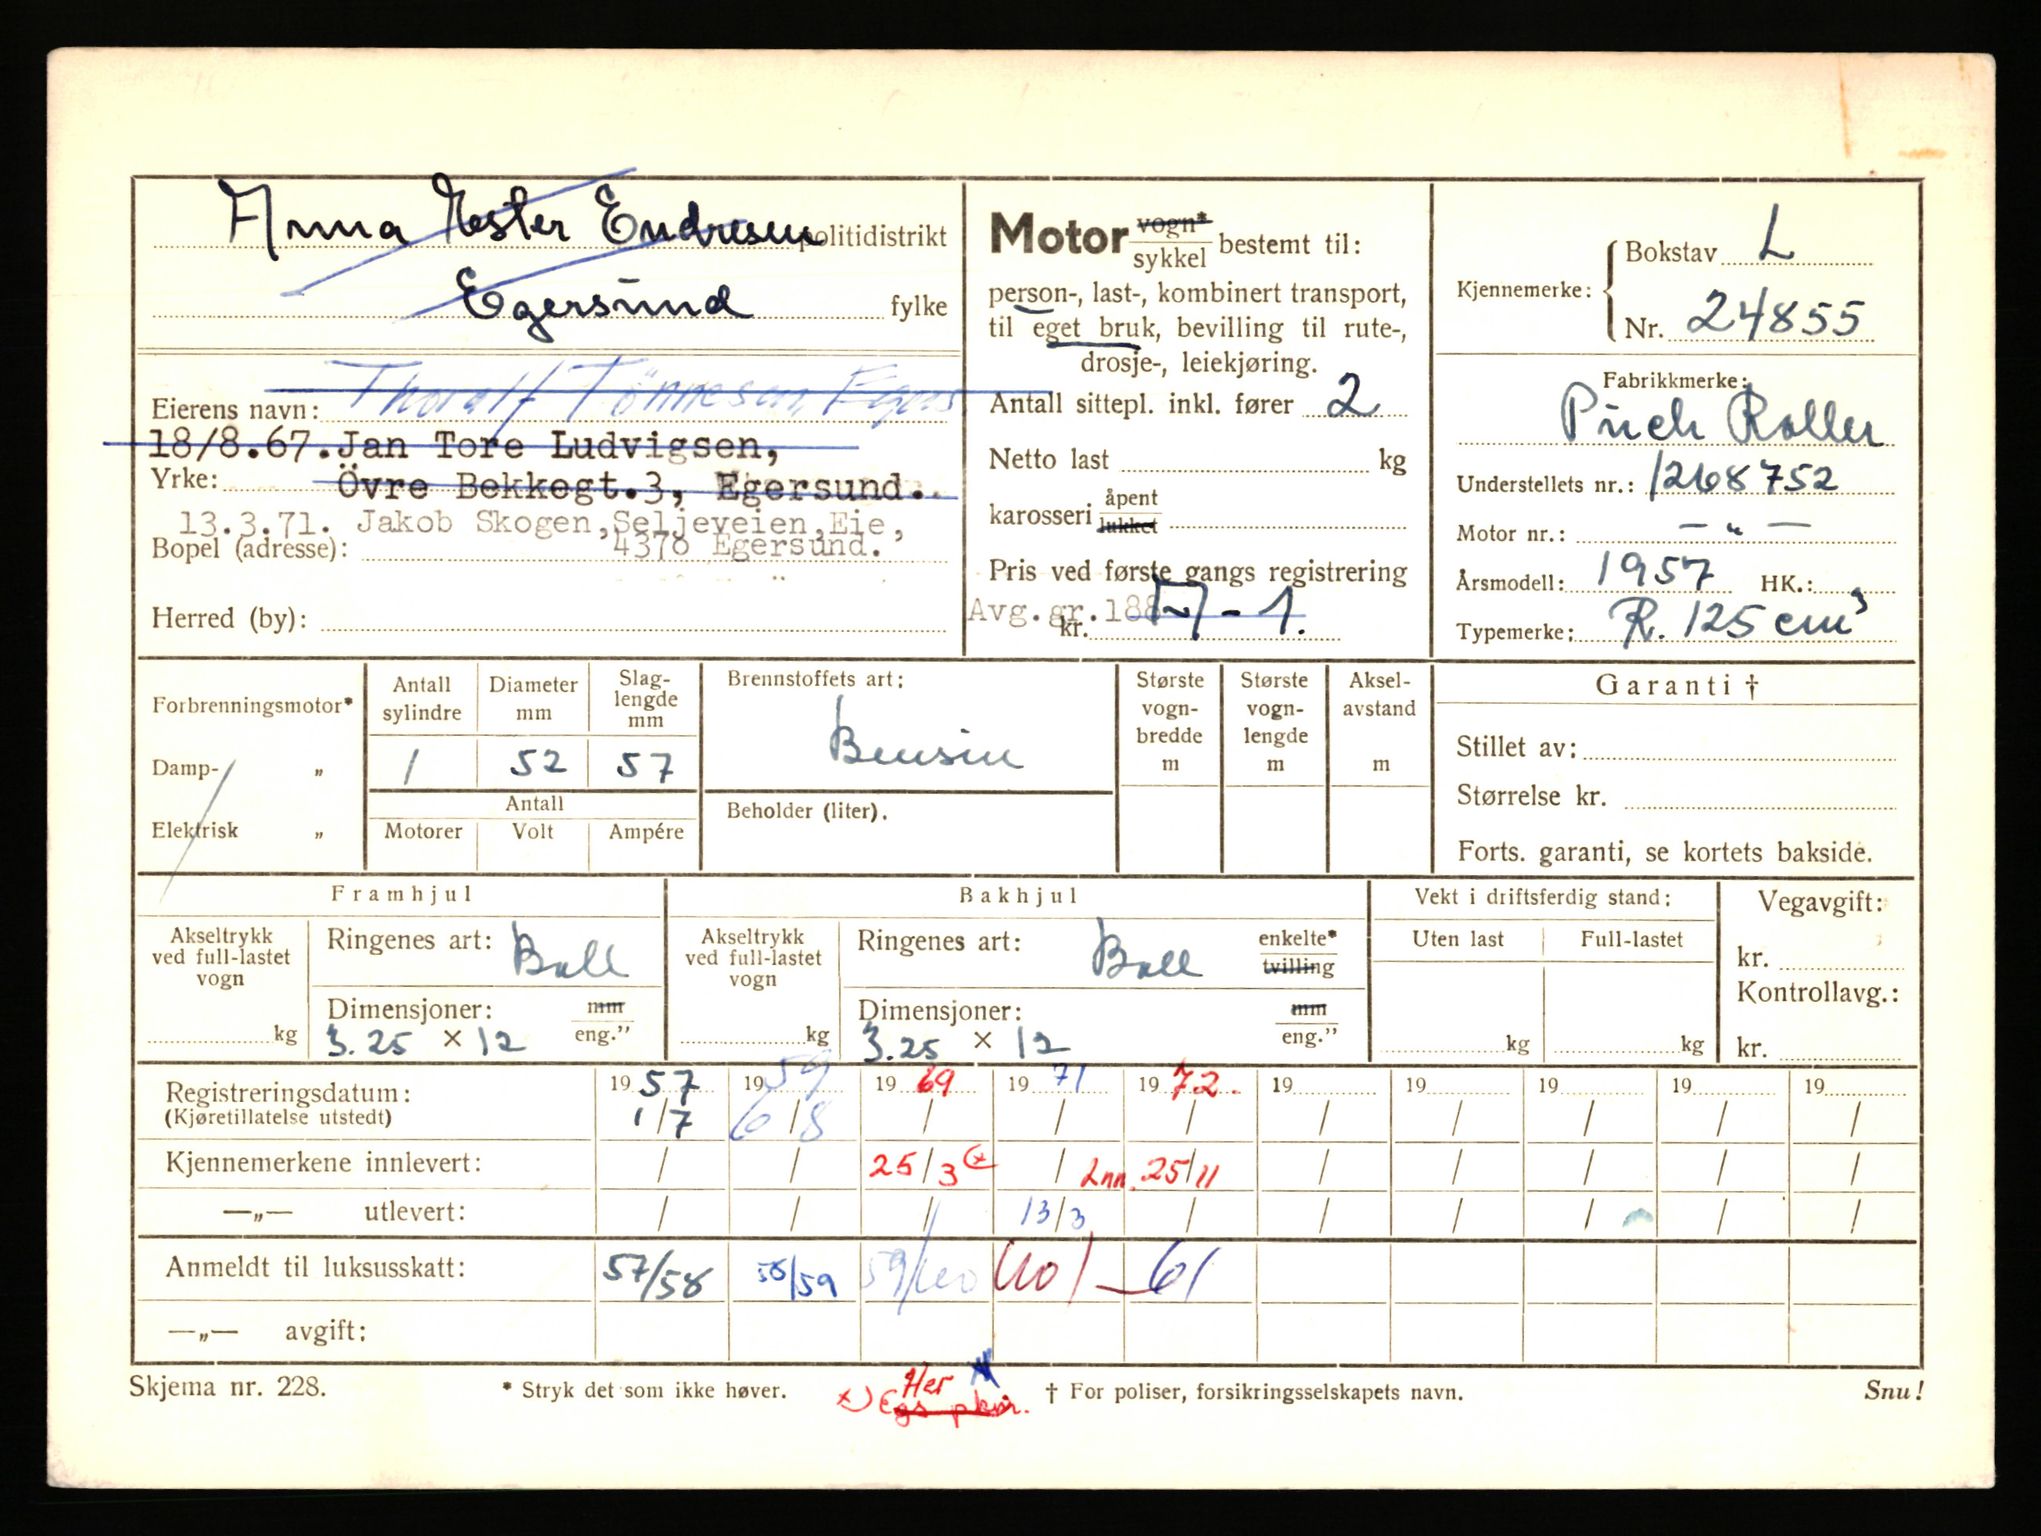 Anna Ester Endresen politidistrikt
Egersund fylke
Eierens navn: Thoralf Tönnesen, Egers
18/8.67. Jan Tore Ludvigsen,
Yrke: Övre Bekkegt.3, Egersund.
13.3.71. Jakob Skogen, Seljeveien, Eie,
Bopel (adresse): 4370 Egersund.
Herred (by):
Motor vogn* sykkel bestemt til:
person-, last-, kombinert transport,
til eget bruk, bevilling til rute-,
drosje-, leiekjøring.
Antall sittepl. inkl. fører 2
Netto last kg
karosseri åpent lukket
Pris ved første gangs registrering
Avg.gr.188
kr.
Kjennemerke: Bokstav L
Nr. 24855
Fabrikkmerke:
Puch Roller
Understellets nr.: 1268752
Motor nr.: — „ —
Årsmodell: 1957 HK.:
Typemerke: R. 125 cm³
Forbrenningsmotor*
Damp- „
Elektrisk „
Antall sylindre Diameter mm Slag-lengde mm
1 52 57
Antall
Motorer Volt Ampére
Brennstoffets art:
Bensin
Beholder (liter).
Største vogn-bredde m
Største vogn-lengde m
Aksel-avstand m
Garanti †
Stillet av:
Størrelse kr.
Forts. garanti, se kortets bakside.
Framhjul
Akseltrykk ved full-lastet vogn kg
Ringenes art: Ball
Dimensjoner: mm eng.”
3.25 × 12
Bakhjul
Akseltrykk ved full-lastet vogn kg
Ringenes art: Ball enkelte* tvilling
Dimensjoner: mm eng.”
3.25 × 12
Vekt i driftsferdig stand:
Uten last Full-lastet
kg kg
Vegavgift:
kr.
Kontrollavg.:
kr.
Registreringsdatum: 19 57 19 59 19 69 19 71 19 72. 19 19 19 19 19
(Kjøretillatelse utstedt) 1/7 6/8 / / / / / / / /
Kjennemerkene innlevert: / / 25/3 (x / Inn. 25/11 / / / / /
—„— utlevert: / / / 13/3 / / / / / /
Anmeldt til luksusskatt: 57/58 58/59 59/60 60/-61
—„— avgift:
Skjema nr. 228.
* Stryk det som ikke høver.
Her
x) Egs pkm.
† For poliser, forsikringsselskapets navn.
Snu!